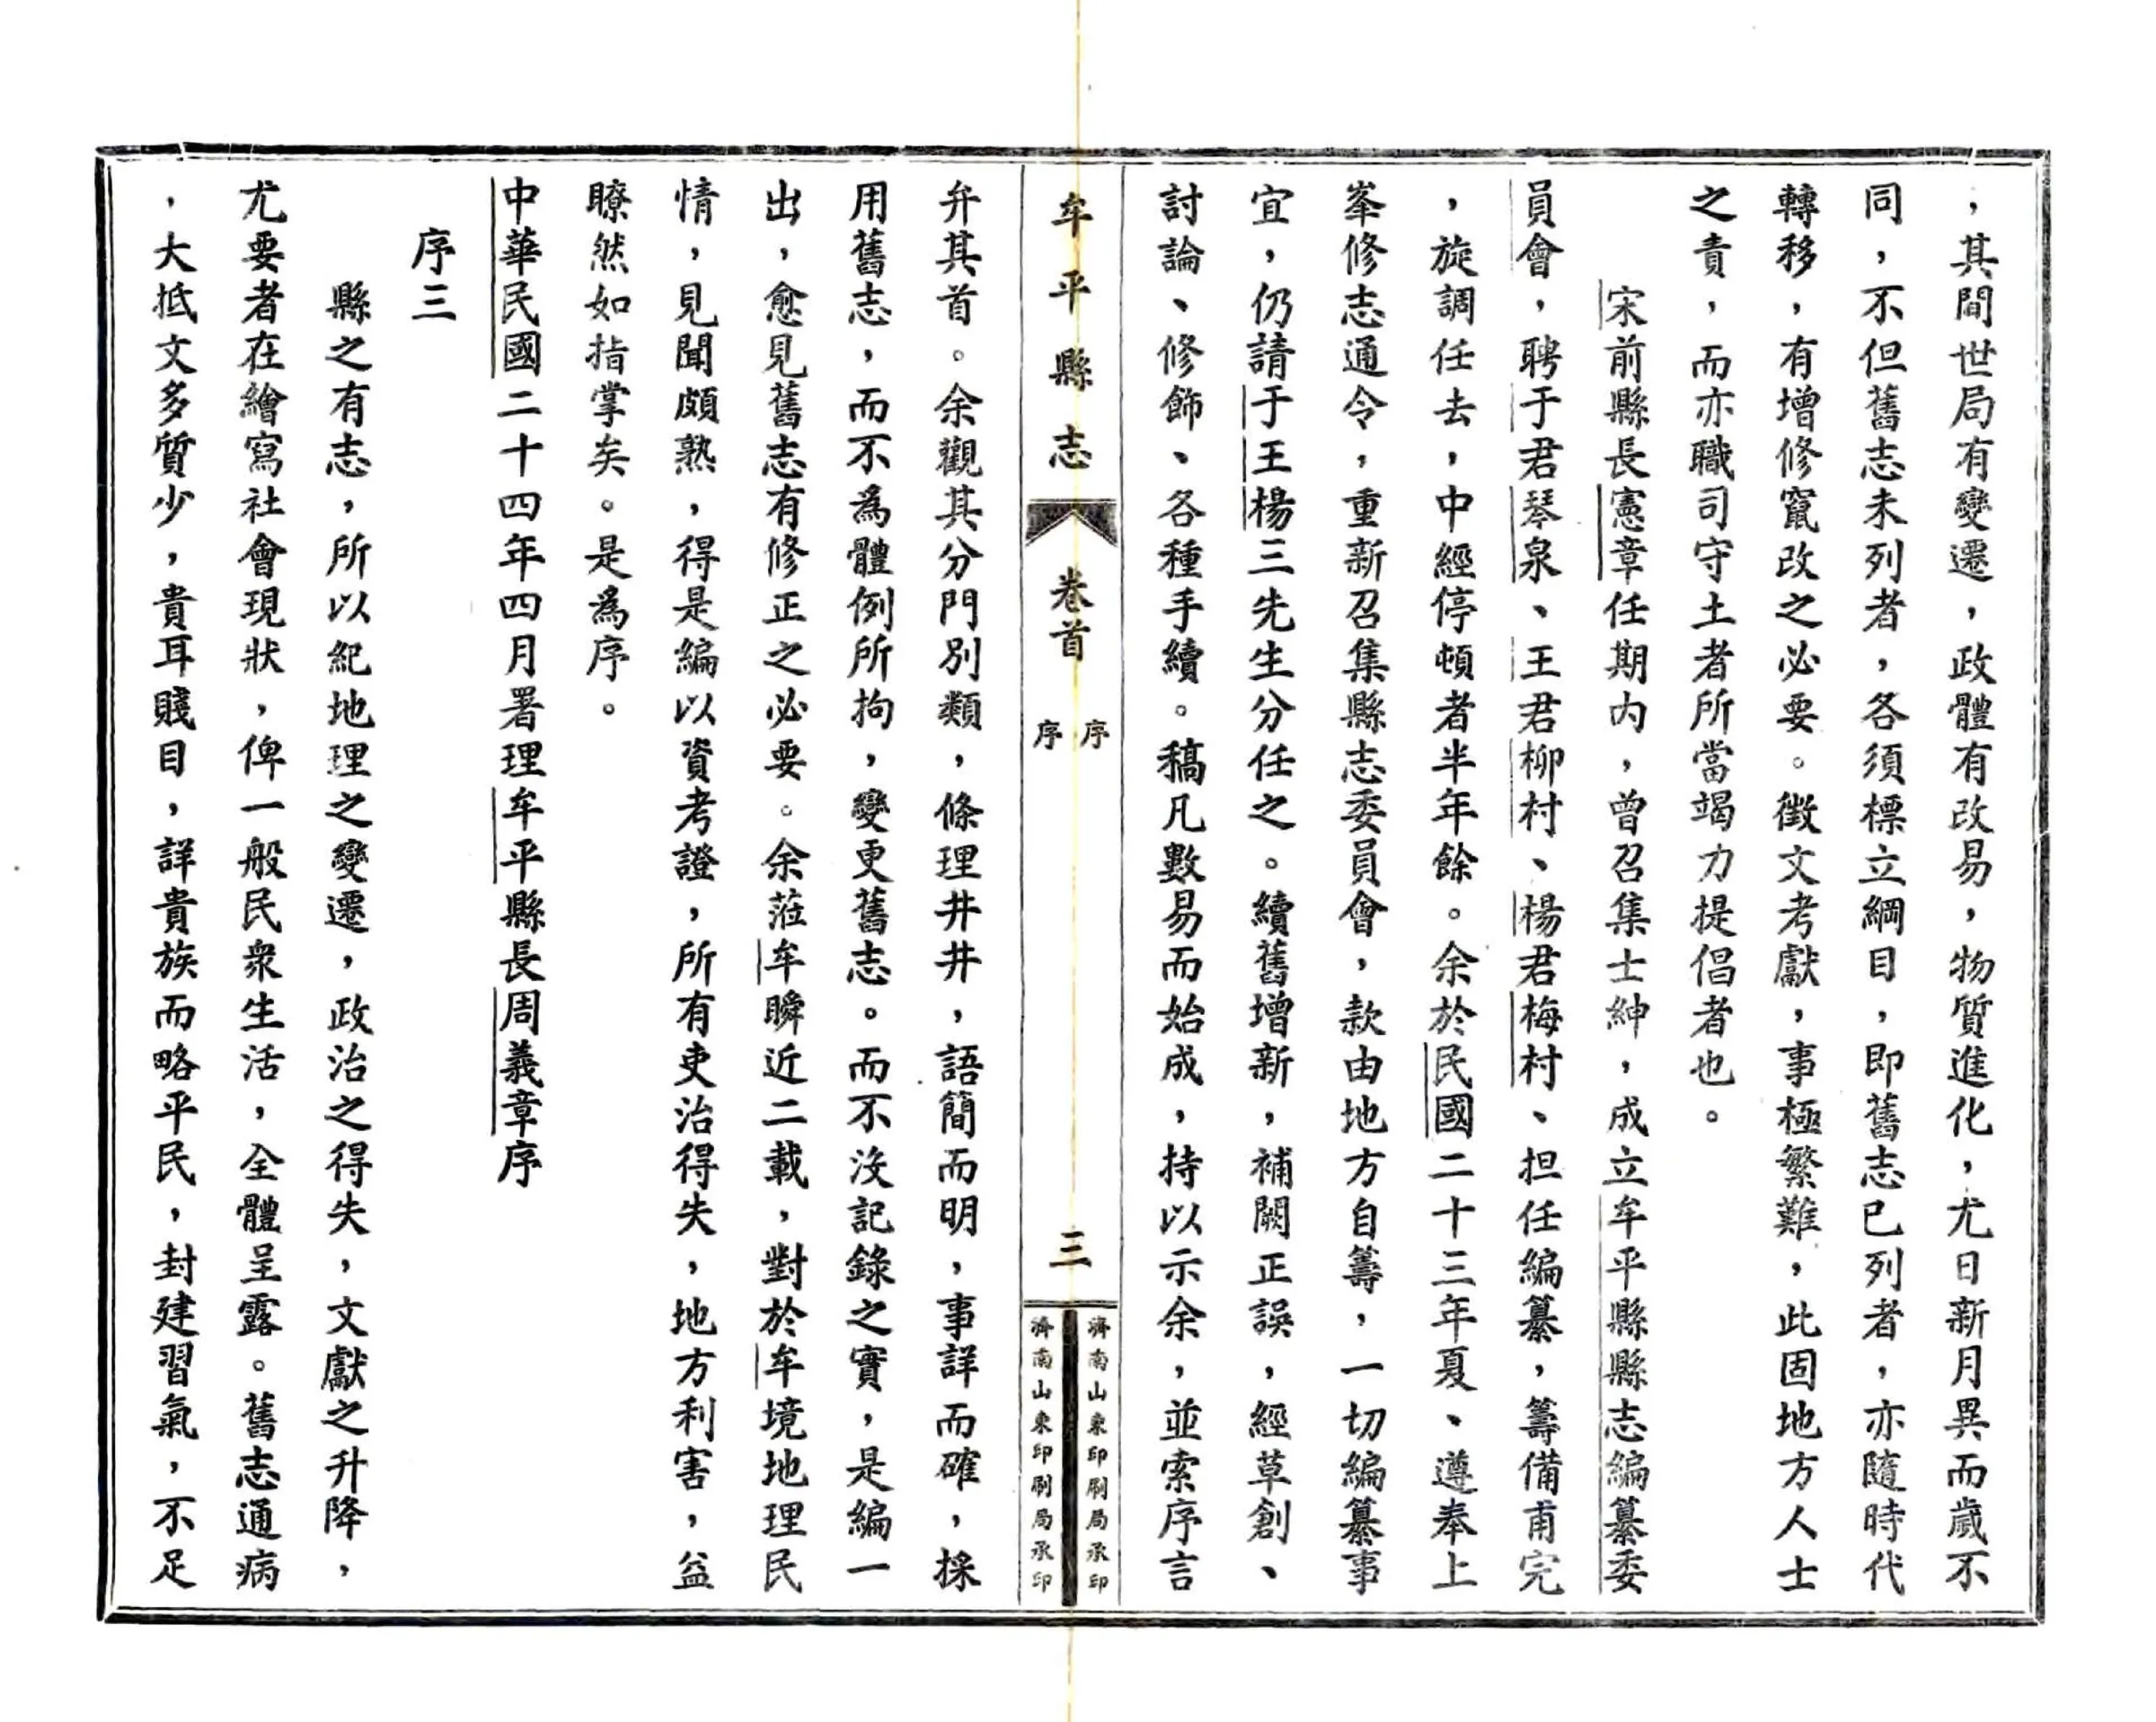 ，其間世局有變遷，政體有改易，物質進化，尤日新月異而歲不
同，不但舊志未列者，各須標立綱目，即舊志已列者，亦隨時代
轉移，有增修竄改之必要。徵文考獻，事極繁難，此固地方人士
之責，而亦職司守土者所當竭力提倡者也。
宋前縣長憲章任期內，曾召集士紳，成立牟平縣縣志編纂委
員會，聘于君琴泉、王君柳村、楊君梅村、担任編纂，籌備甫完
，旋調任去，中經停頓者半年餘。余於民國二十三年夏、遵奉上
峯修志通令，重新召集縣志委員會，款由地方自籌，一切編纂事
宜，仍請于王楊三先生分任之。續舊增新，補闕正誤，經草創、
討論、修飾、各種手續。稿凡數易而始成，持以示余，並索序言
牟平縣志 卷首 序 序 三
濟南山東印刷局承印
濟南山東印刷局承印
弁其首。余觀其分門別類，條理井井，語簡而明，事詳而確，採
用舊志，而不為體例所拘，變更舊志。而不沒記錄之實，是編一
出，愈見舊志有修正之必要。余蒞牟瞬近二載，對於牟境地理民
情，見聞頗熟，得是編以資考證，所有吏治得失，地方利害，益
瞭然如指掌矣。是為序。
中華民國二十四年四月署理牟平縣長周義章序
序三
縣之有志，所以紀地理之變遷，政治之得失，文獻之升降，
尤要者在繪寫社會現狀，俾一般民衆生活，全體呈露。舊志通病
，大抵文多質少，貴耳賤目，詳貴族而略平民，封建習氣，不足